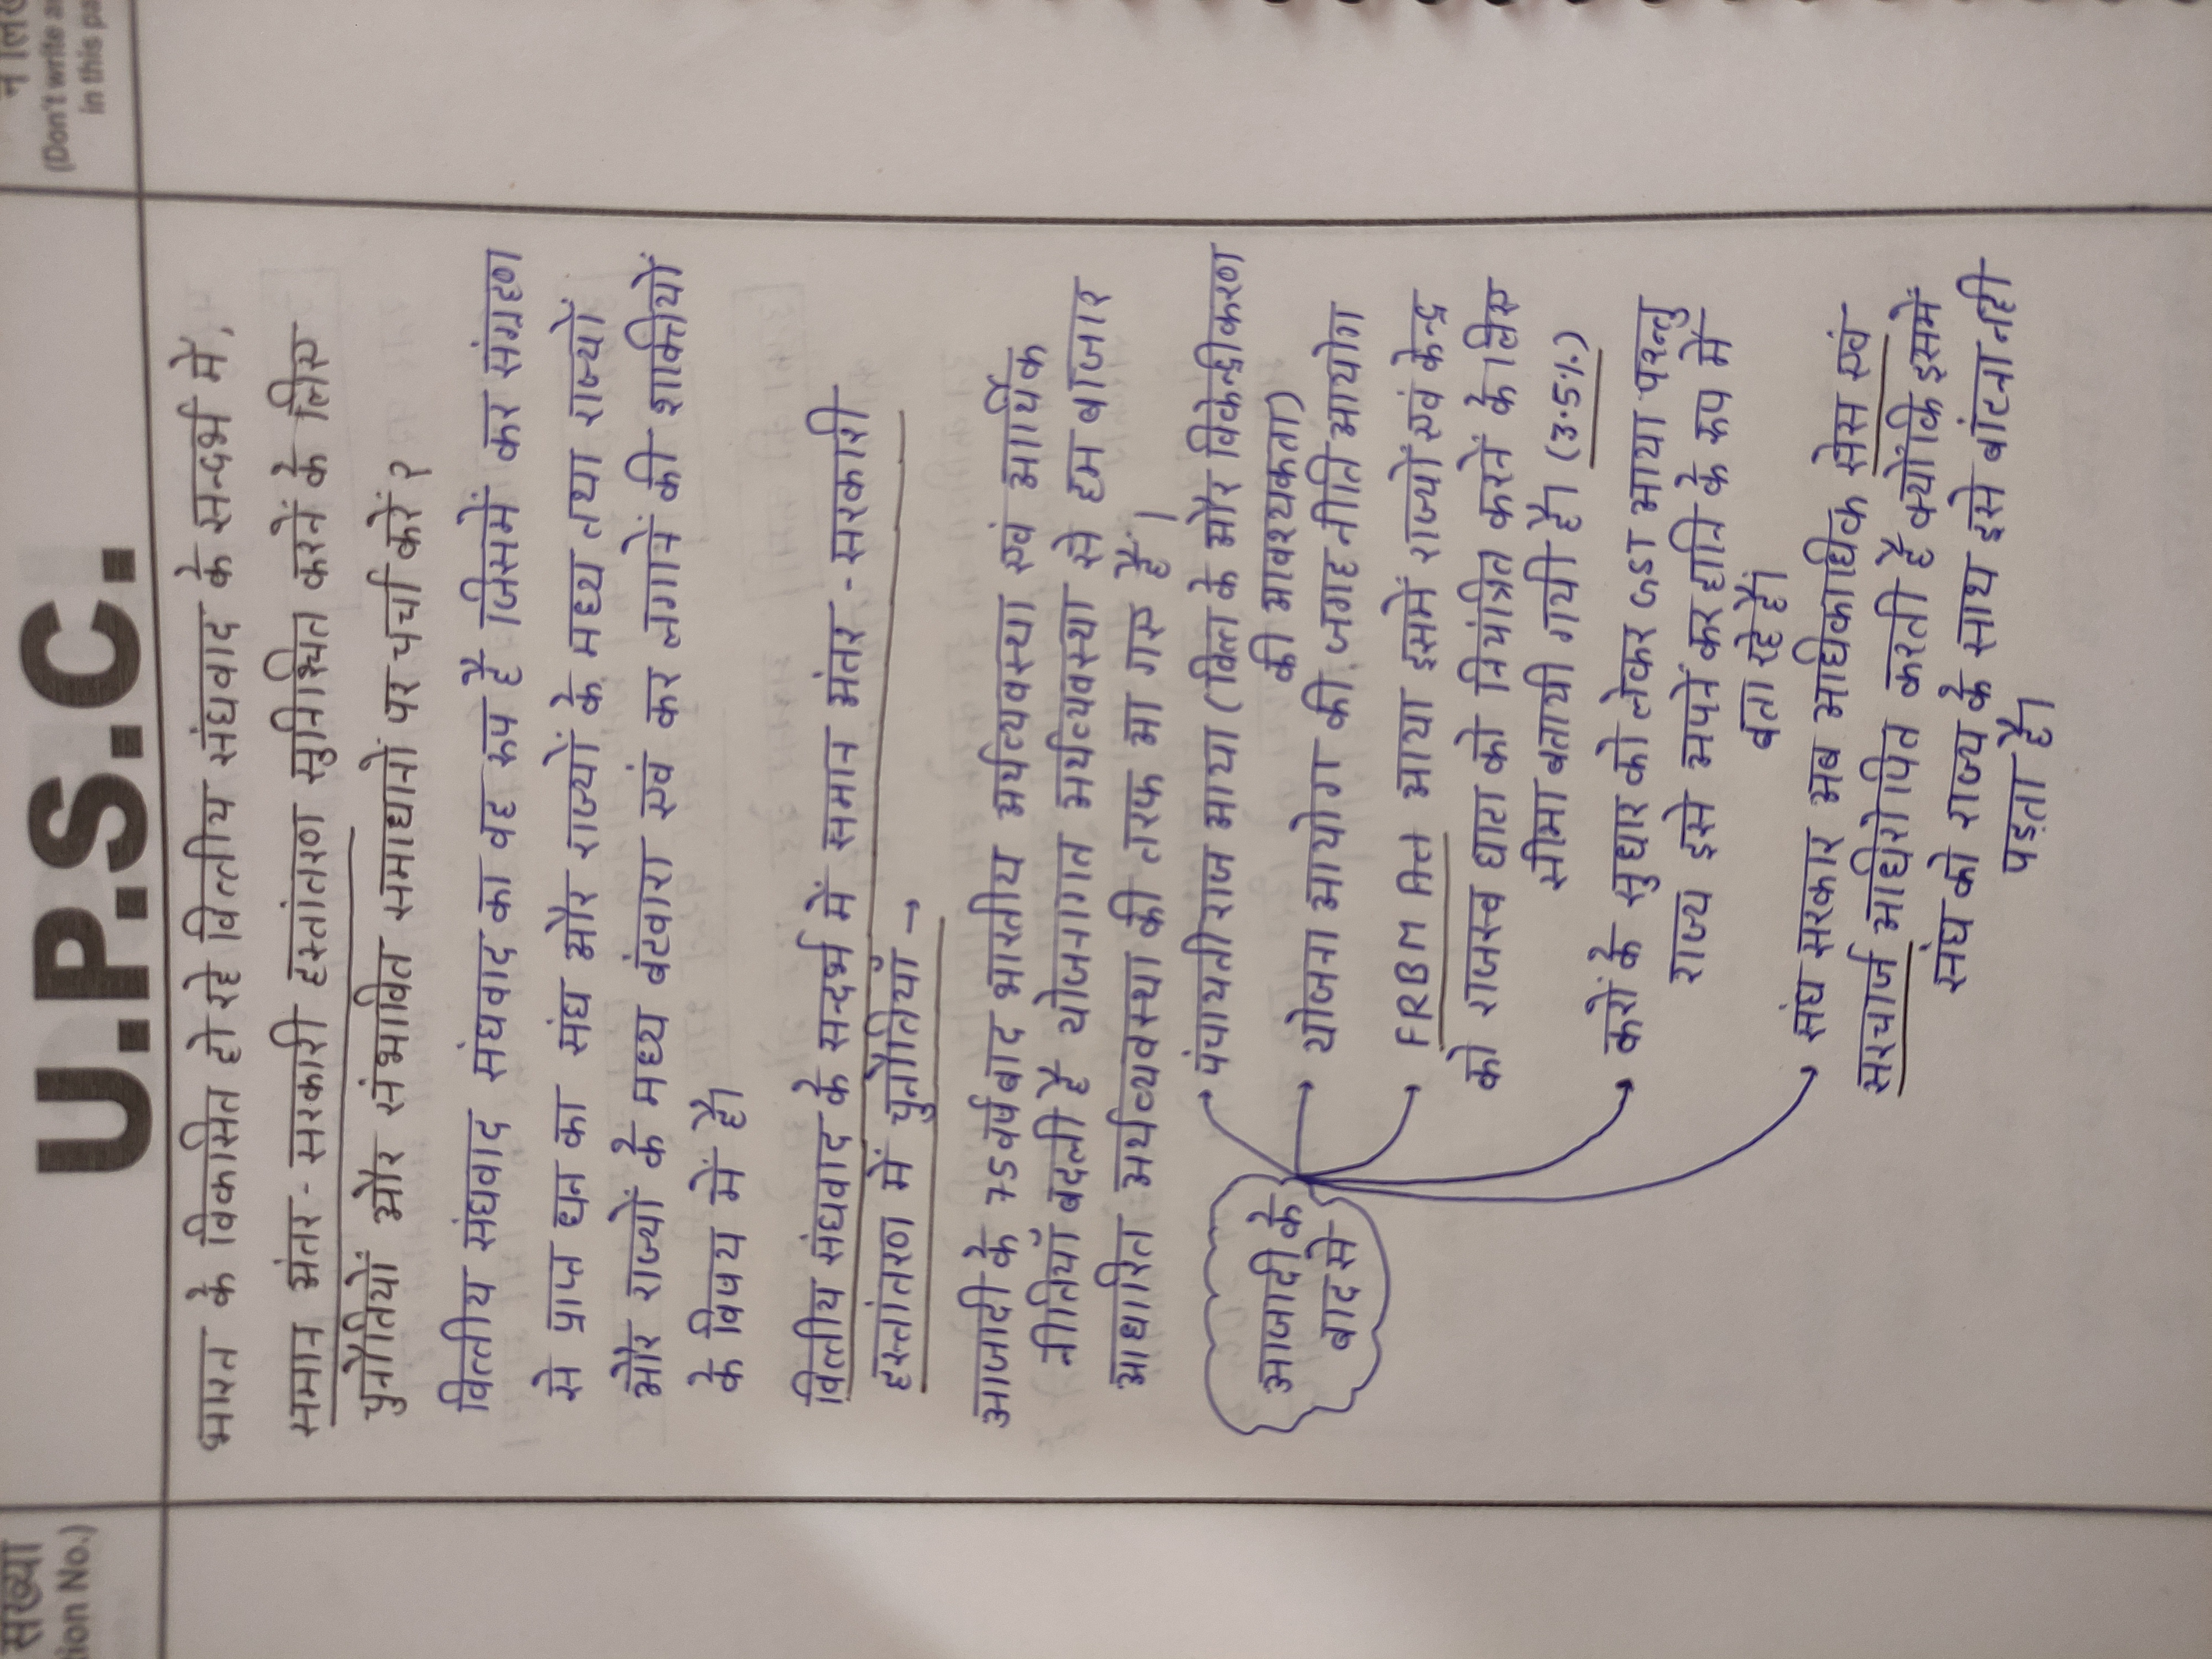 U.P.S.C.
संख्या
tion No.)
(Don't write a
in this pa
भारत के विकसित हो रहे वित्तीय संघवाद के सन्दर्भ में,
समान अंतर-सरकारी हस्तांतरण सुनिश्चित करनें के लिए
चुनौतियों और संभावित समाधानों पर चर्चा करें ?
वित्तीय संघवाद संघवाद का वह रूप है जिसमें कर संग्रहण
से प्राप्त धन का संघ और राज्यों के मध्य तथा राज्यों
और राज्यों के मध्य बंटवारा एवं कर लगानें की शक्तियों
के विषय में है।
वित्तीय संघवाद के सन्दर्भ में समान अंतर-सरकारी
हस्तांतरण में चुनौतियाँ →
आजादी के 75 वर्ष बाद भारतीय अर्थव्यवस्था एवं आर्थिक
नीतियाँ बदली है योजनागत अर्थव्यवस्था से हम बाजार
आधारित अर्थव्यवस्था की तरफ आ गए है।
आजादी के
बाद से
→ पंचायती राज आया (वित्त के और विकेन्द्रीकरण
की आवश्यकता)
→ योजना आयोग की जगह नीति आयोग
→ FRBM एक्ट आया इसमें राज्यों एवं केन्द्र
को राजस्व घाटा को नियंत्रित करनें के लिए
सीमा बतायी गयी है। (3.5%)
→ करों के सुधार को लेकर GST आया परन्तु
राज्य इसे अपनें कर हानि के रूप में
बता रहे हैं।
→ संघ सरकार अब अधिकाधिक सेस एवं
सरचार्ज अधिरोपित करती है क्योंकि इसमें
संघ को राज्य के साथ इसे बांटना नही
पड़ता है।